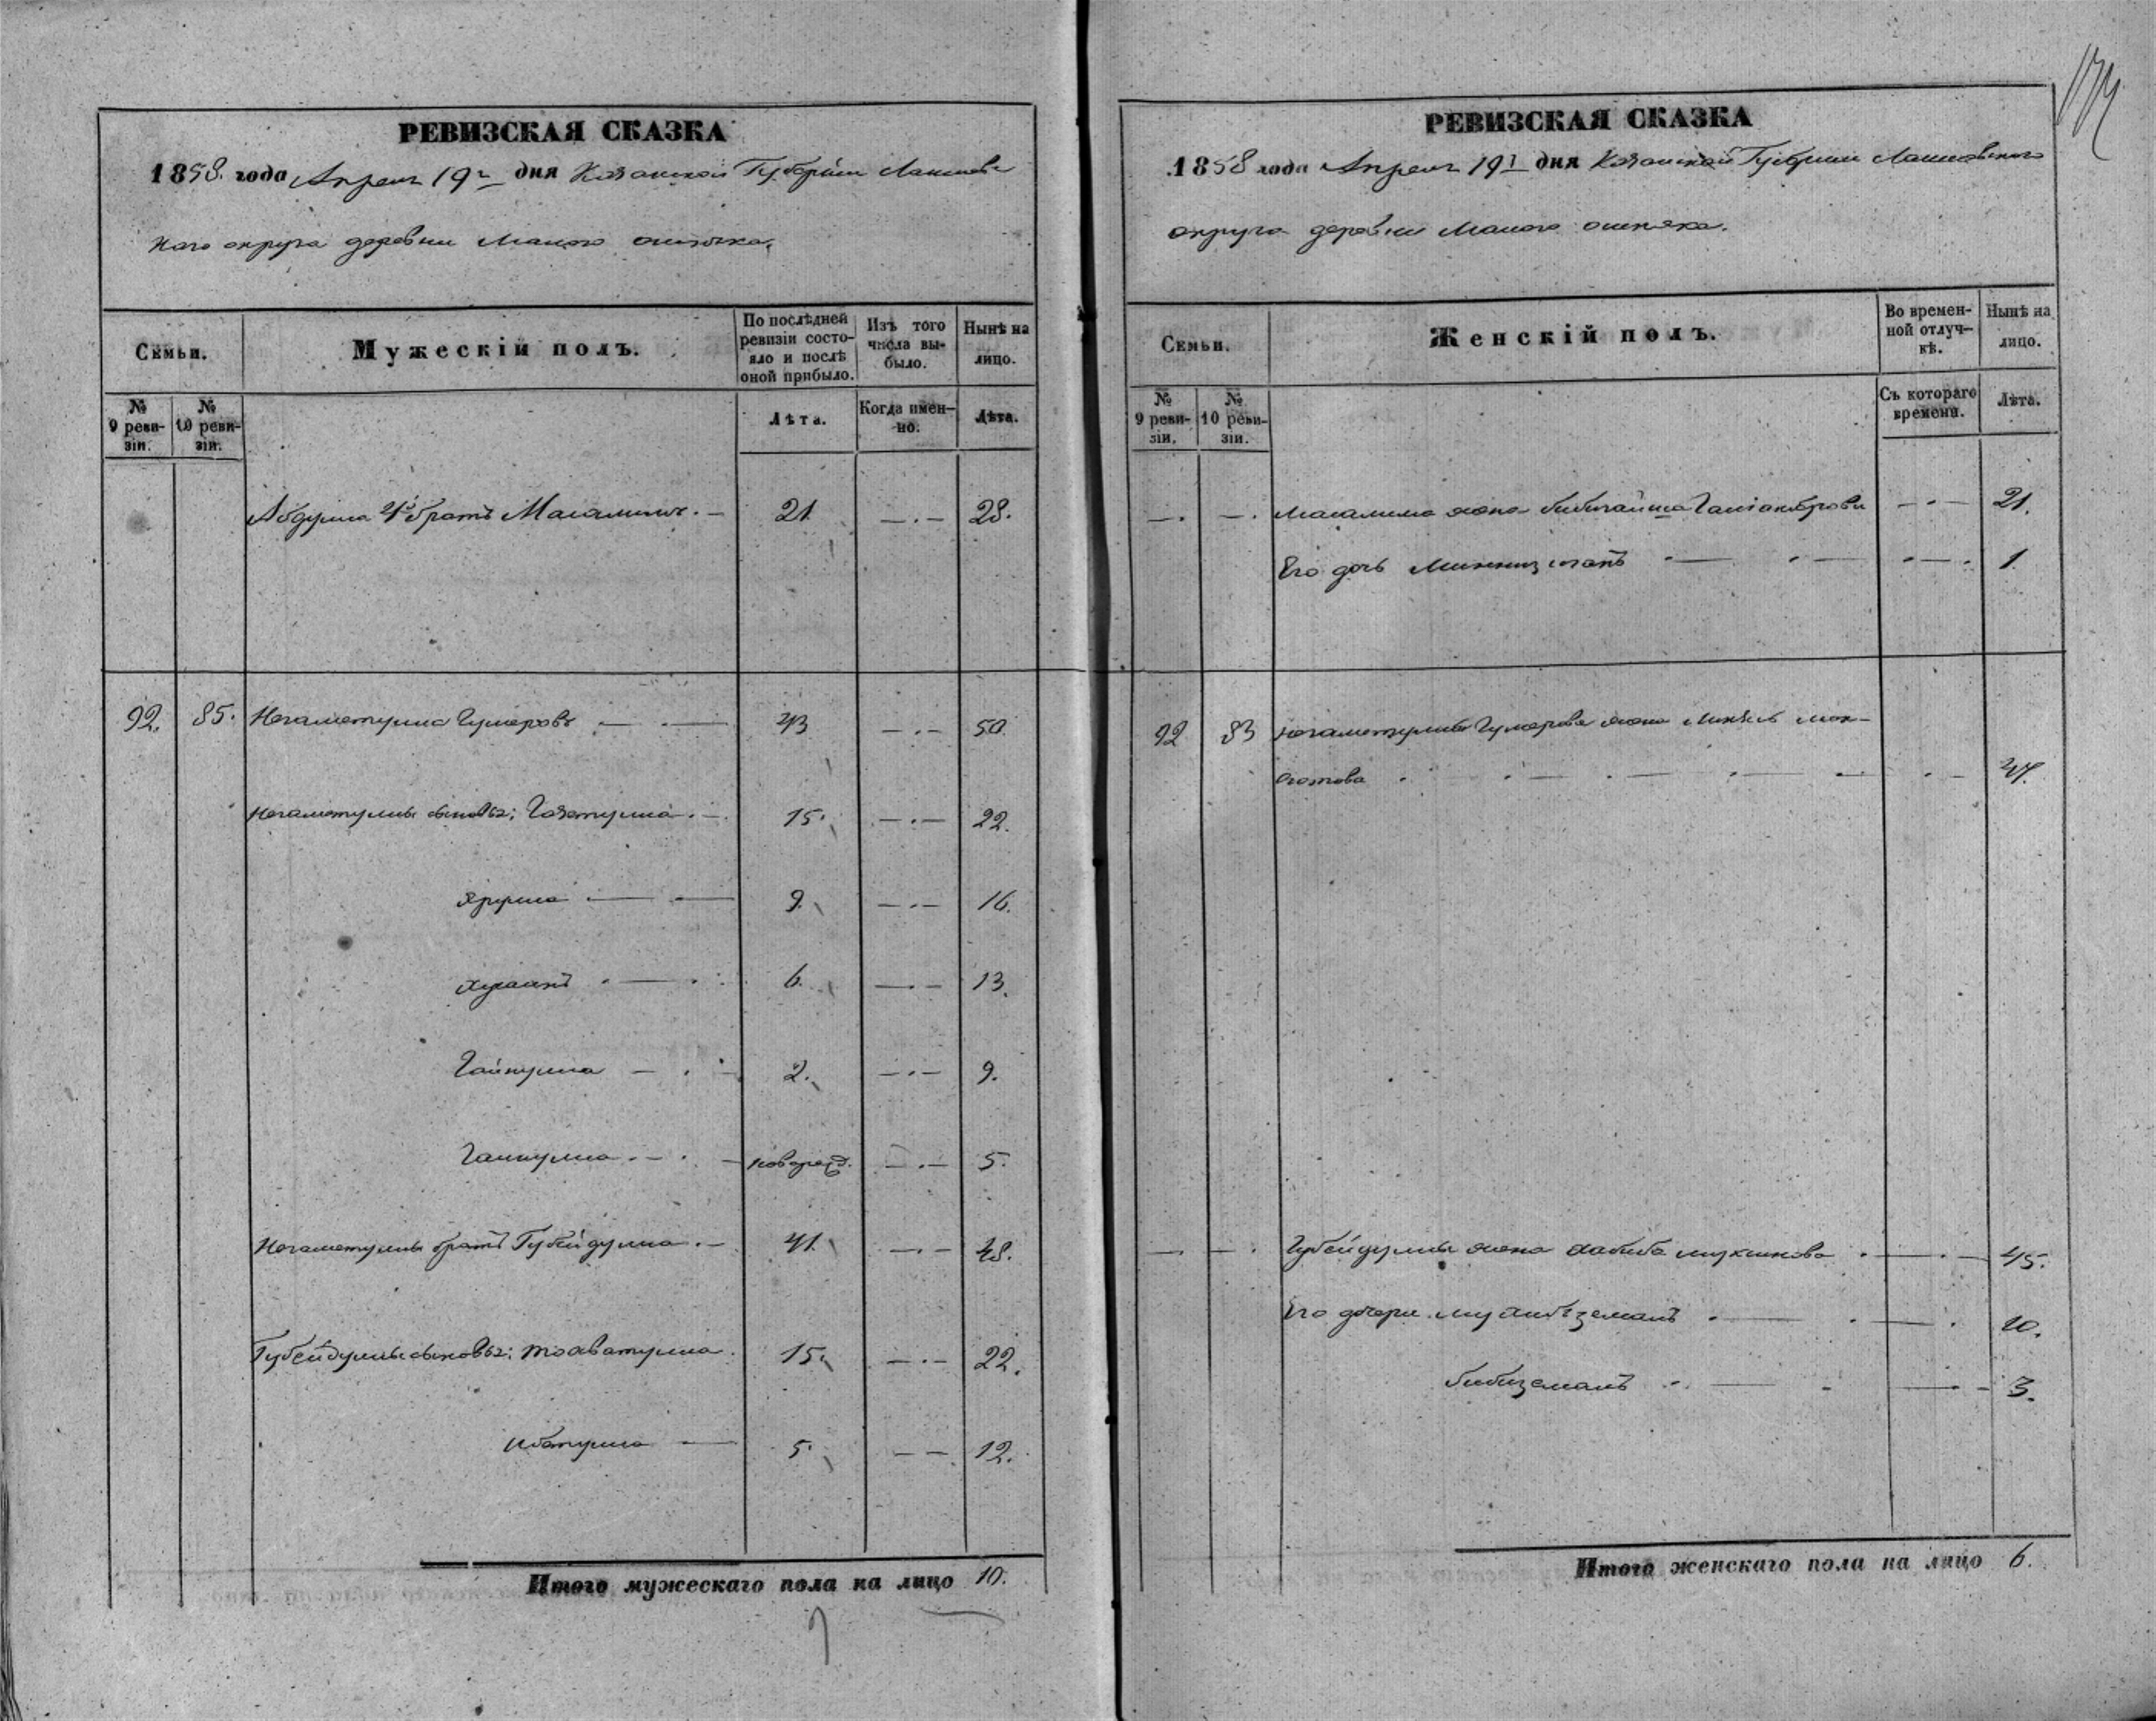 РЕВИЗСКАЯ СКАЗКА
1858 года Апреля 19 дня Казанской Губернии Лаишевс
каго округа деревни Малого ошняка.
Семьи.
Мужескій полъ.
По послѣдней ревизіи состояло и послѣ оной прибыло.
Изъ того числа выбыло.
Нынѣ на лицо.
№ 9 ревизіи.
№ 10 ревизіи.
Лѣта.
Когда именно.
Лѣта.
Абдулла 4й братъ Магалимъ. 21. 28.
92. 85. Негаметулла Гумеровъ 43 50.
Негаметуллы сыновья: Газетулла 15. 22.
Ярулла 9. 16.
6. 13.
Гайнулла 2. 9.
новорожд. 5.
Негаметуллы братъ Губейдулла 41. 48.
Губейдуллы сыновья: 15. 22.
5. 12.
Итого мужескаго пола на лицо 10.
РЕВИЗСКАЯ СКАЗКА
1858 года Апреля 19 дня Казанской Губернии Лаишевского
округа деревни Малого ошняка.
Семьи.
Женскій полъ.
Во временной отлучкѣ.
Нынѣ на лицо.
№ 9 ревизіи.
№ 10 ревизіи.
Съ котораго времени.
Лѣта.
жена 21.
Его дочь 1
92 Негаметуллы Гумерова жена
47.
Губейдуллы жена Хабиба 45.
Его дочери 10.
Бибиземалъ 3.
Итого женскаго пола на лицо 6.